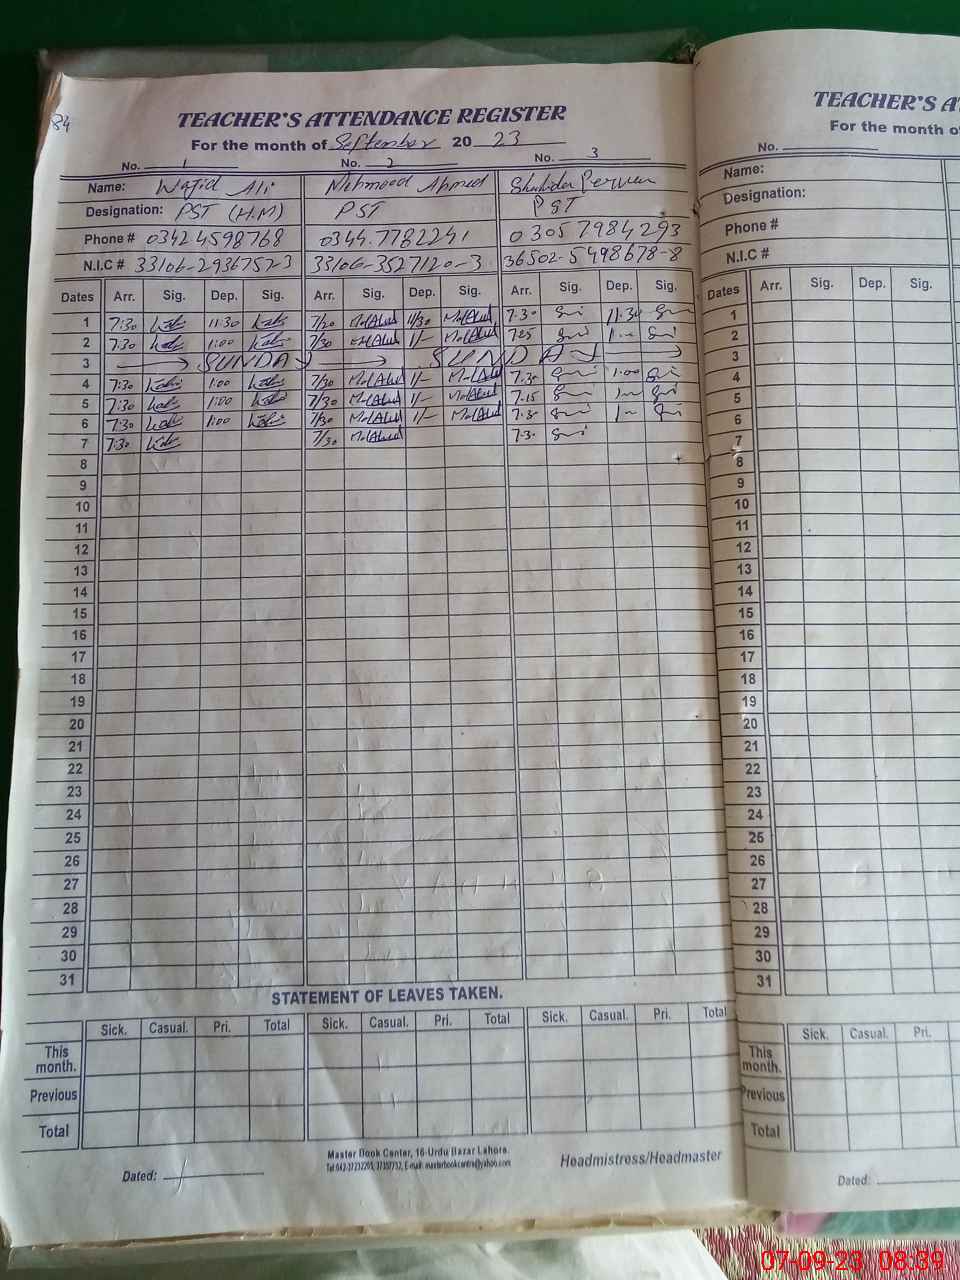 84
TEACHER'S ATTENDANCE REGISTER
For the month of September 20 23
No. 1 No. 2 No. 3
Name: Wajid Ali Mehmood Ahmed Shahida Perveen
Designation: PST (H.M) PST PST
Phone # 0342 4598768 0344.7782241 0305 7984293
N.I.C # 33106-2936752-3 33106-3527120-3 36502-5498678-8
Dates Arr. Sig. Dep. Sig. Arr. Sig. Dep. Sig. Arr. Sig. Dep. Sig.
1 7:30 11:30 7/20 11/30 7.30 11.30
2 7:30 1:00 7/30 1/- 725
3 SUNDAY SUNDAY
4 7:30 1:00 7/30 1/- 7.30 1.00
5 7:30 1:00 7/30 1/- 7.15
6 7:30 1:00 7/30 1/- 7.30
7 7:30 7/30 7.30
8
9
10
11
12
13
14
15
16
17
18
19
20
21
22
23
24
25
26
27
28
29
30
31
STATEMENT OF LEAVES TAKEN.
Sick. Casual. Pri. Total Sick. Casual. Pri. Total Sick. Casual. Pri. Total
This month.
Previous
Total
Master Book Center, 16-Urdu Bazar Lahore.
Dated: Headmistress/Headmaster
TEACHER'S AT
For the month of
No.
Name:
Designation:
Phone #
N.I.C #
Dates Arr. Sig. Dep. Sig.
1
2
3
4
5
6
7
8
9
10
11
12
13
14
15
16
17
18
19
20
21
22
23
24
25
26
27
28
29
30
31
Sick. Casual. Pri.
This month.
Previous
Total
Dated:
07-09-23 08:39